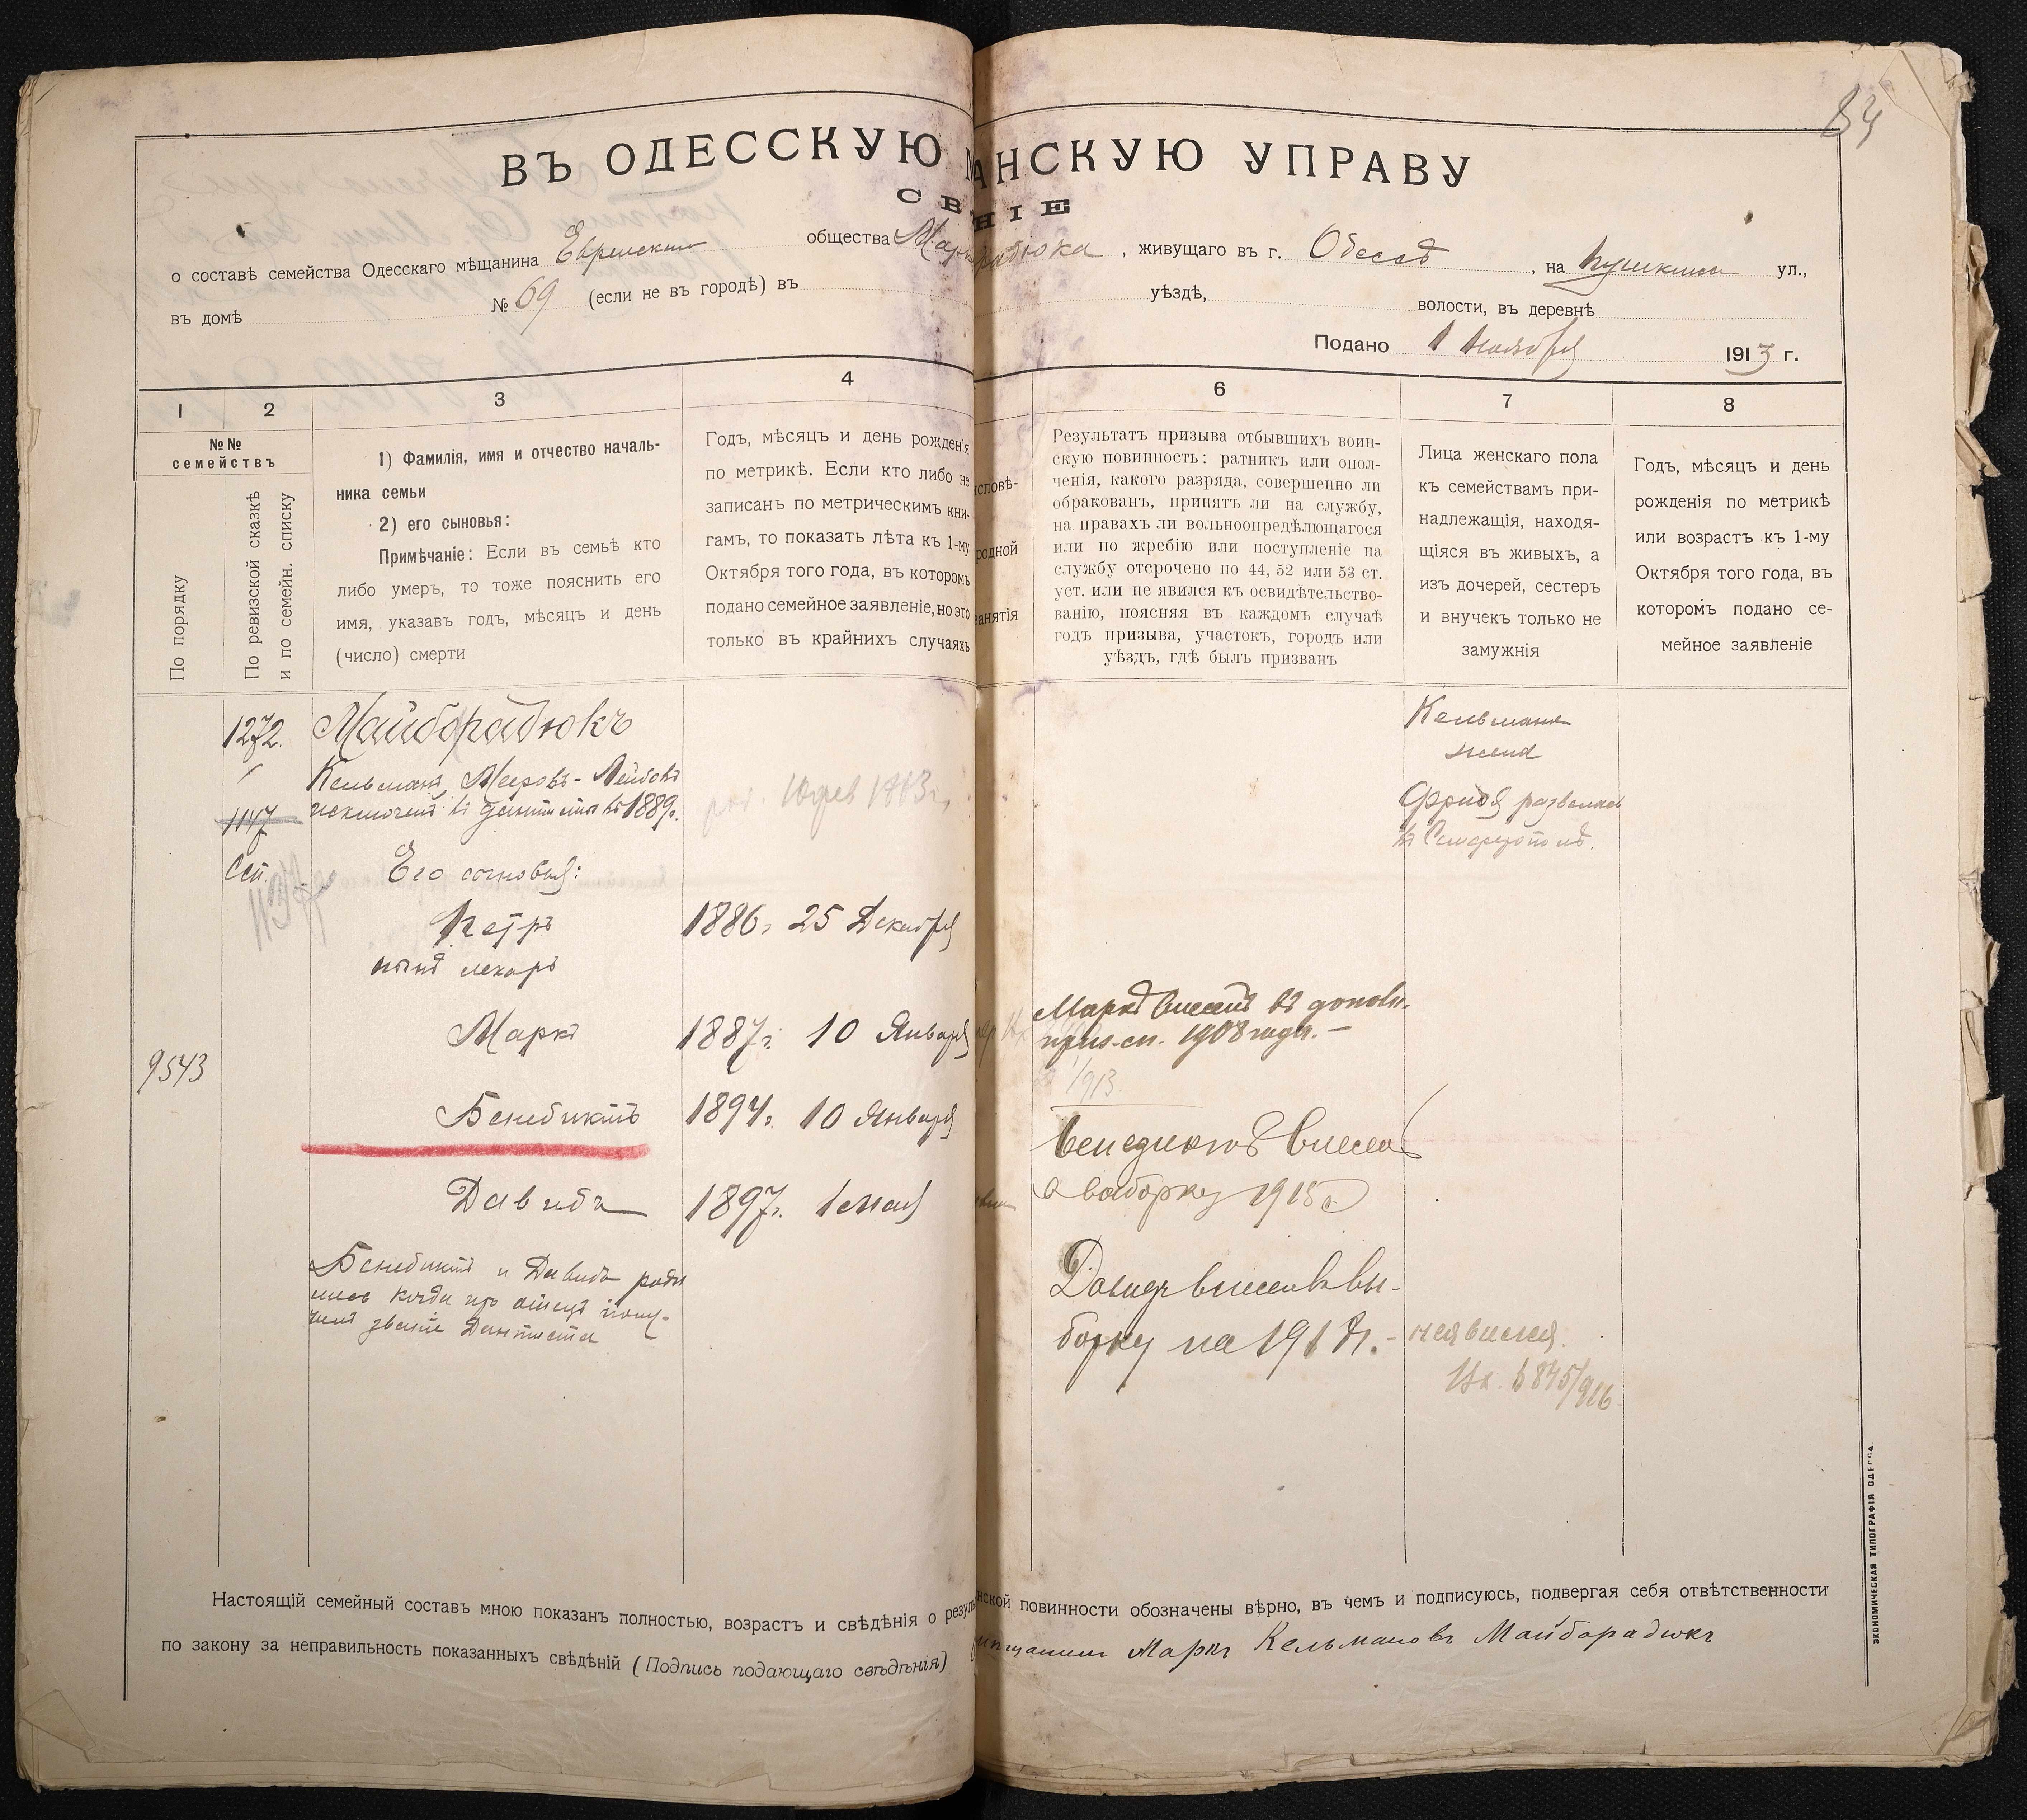 84
ВЪ ОДЕССКУЮ АНСКУЮ УПРАВУ
СВ НІЕ
о составѣ семейства Одесскаго мѣщанина Еврейскаго общества Марка , живущаго въ г. Одессѣ , на Пушкинск ул.,
въ домѣ № 69 (если не въ городѣ) въ уѣздѣ, волости, въ деревнѣ
Подано 1 Ноября 1913 г.
1
2
3
4
6
7
8
№№
семействъ
По порядку
По ревизской сказкѣ
и по семейн. списку
1) Фамилія, имя и отчество началь-
ника семьи
2) его сыновья:
Примѣчаніе: Если въ семьѣ кто
либо умеръ, то тоже пояснить его
имя, указавъ годъ, мѣсяцъ и день
(число) смерти
Годъ, мѣсяцъ и день рожденія
по метрикѣ. Если кто либо не
записанъ по метрическимъ кни-
гамъ, то показать лѣта къ 1-му
Октября того года, въ которомъ
подано семейное заявленіе, но это
только въ крайнихъ случаяхъ
исповѣ-
родной
занятія
Результатъ призыва отбывшихъ воин-
скую повинность: ратникъ или опол-
ченія, какого разряда, совершенно ли
обракованъ, принятъ ли на службу,
на правахъ ли вольноопредѣляющагося
или по жребію или поступленіе на
службу отсрочено по 44, 52 или 53 ст.
уст. или не явился къ освидѣтельство-
ванію, поясняя въ каждомъ случаѣ
годъ призыва, участокъ, городъ или
уѣздъ, гдѣ былъ призванъ
Лица женскаго пола
къ семействамъ при-
надлежащія, находя-
щіяся въ живыхъ, а
изъ дочерей, сестеръ
и внучекъ только не
замужнія
Годъ, мѣсяцъ и день
рожденія по метрикѣ
или возрастъ къ 1-му
Октября того года, въ
которомъ подано се-
мейное заявленіе
1272.
Майборадюкъ
Кельманъ, Мееровъ-Лейбовъ
исключенъ въ дантисты въ 1889г.
1147
Сп.
1137
Кельмана
жена
Фрида разведена
въ Симферополѣ.
Его сыновья:
Петръ 1886г. 25 Декабря
нынѣ лекарь
Маркъ 1887г. 10 Января
Маркъ внесенъ въ дополн.
приз. сп. 1908 года.-
1913
9543
Бенедиктъ 1894г. 10 Января
Бенедиктъ внесен
в выборку 1915г
Давидъ 1897г. 1 Мая
Давид внесен в вы-
борку на 1918г.-
Бенедиктъ и Давидъ роди
лись когда их отецъ полу-
чилъ званіе Дантиста
845/916
Настоящій семейный составъ мною показанъ полностью, возрастъ и свѣдѣнія о резуль нской повинности обозначены вѣрно, въ чемъ и подписуюсь, подвергая себя отвѣтственности
по закону за неправильность показанныхъ свѣдѣній (Подпись подающаго свѣдѣнія) мѣщанинъ Маркъ Кельмановъ Майборадюкъ
ЭКОНОМИЧЕСКАЯ ТИПОГРАФІЯ ОДЕССА.